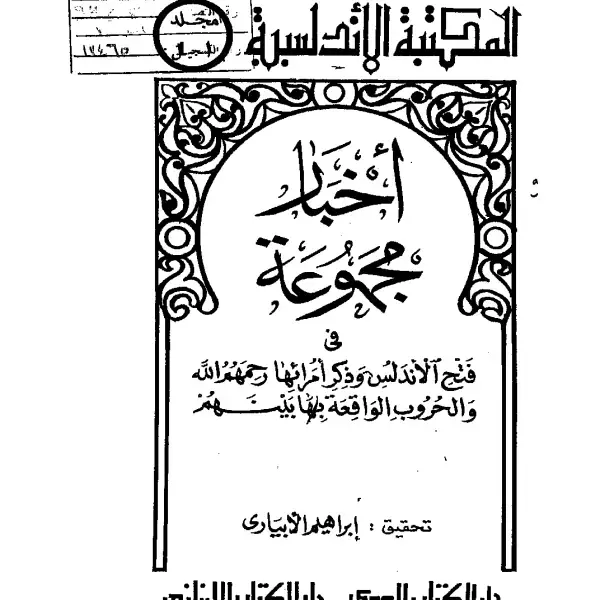 المكتبة الأندلسية
مجلد
١٢٤٦٥
أخبار
مجموعة
فى
فَتْحِ الأَندلس وَذِكرِ أُمَرَائهَا رحِمَهُمُ اللّه
وَالحُرُوبِ الوَاقِعَةِ بِهَا بَيْنَهُمْ
تحقيق : إبراهيم الأبيارى
دار الكتاب المصرى دار الكتاب اللبنانى